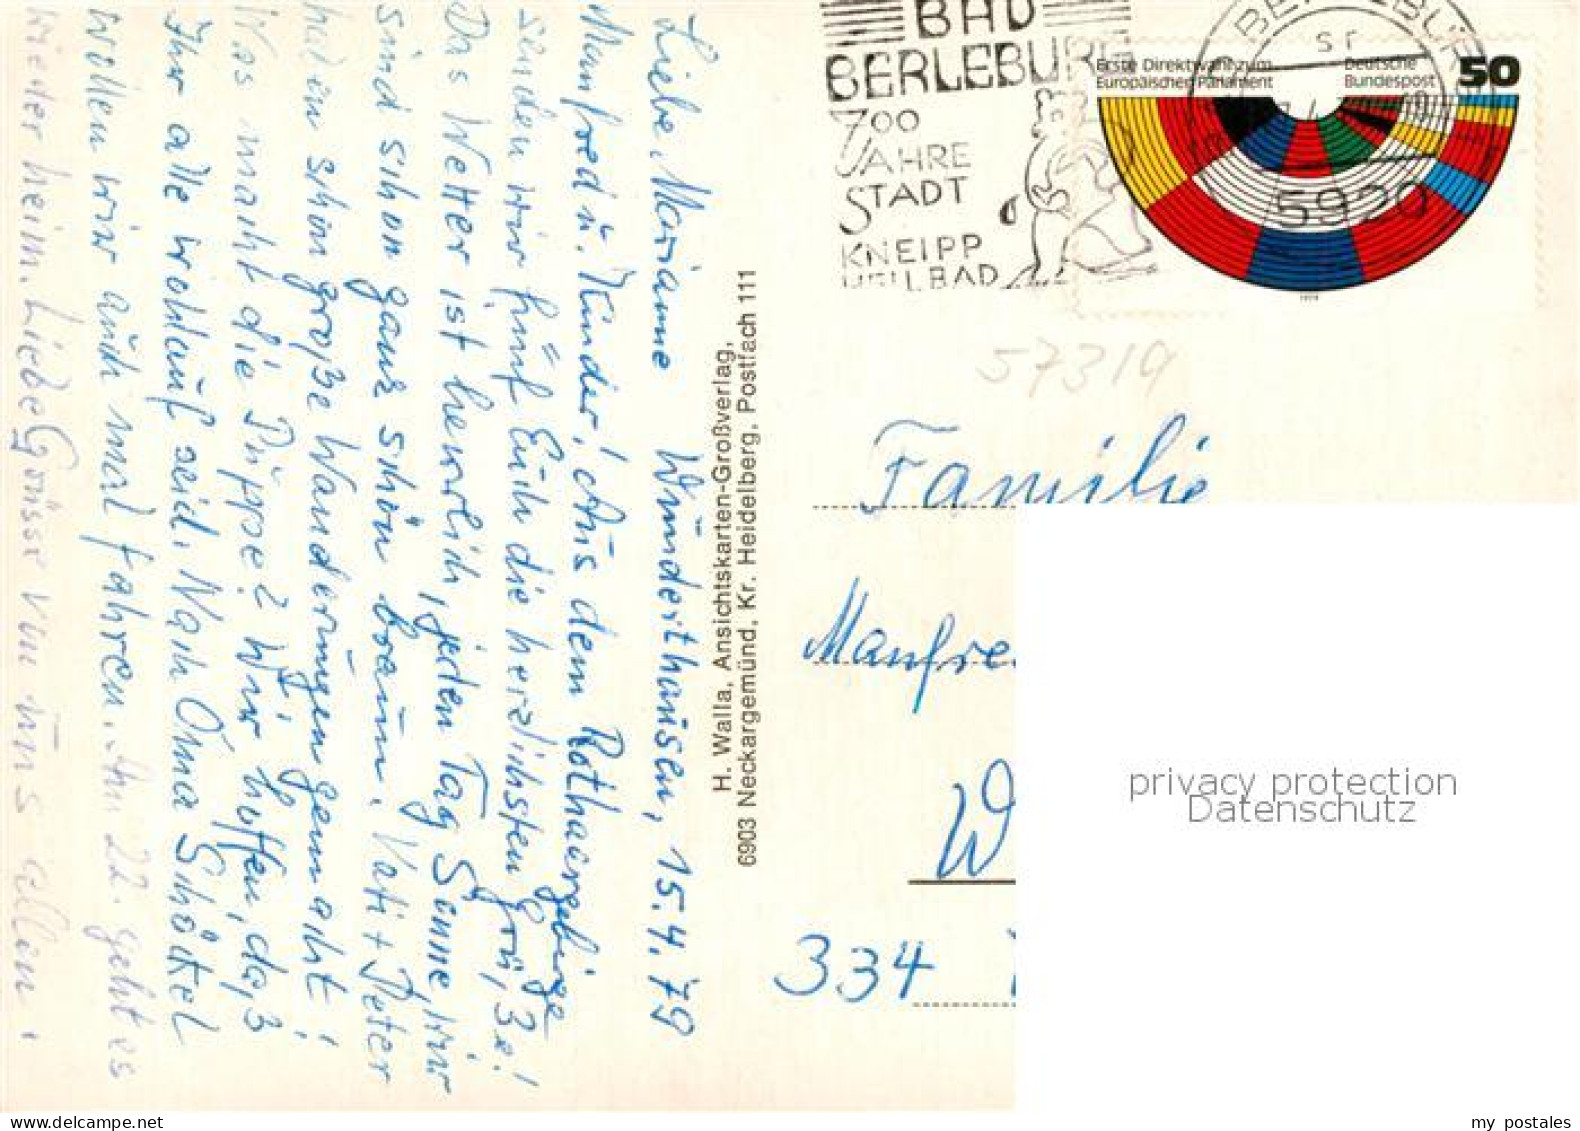 Wunderthausen, 15.4.79
Liebe Marianne
Manfred u. Kinder! Aus dem Rothaargebirge
senden wir fünf Euch die herzlichsten Grüße!
Das Wetter ist herrlich, jeden Tag Sonne, wir
sind schon ganz schön braun. Vati + Peter
haben schon große Wanderungen gemacht!
Was macht die Puppe? Wir hoffen, daß
Ihr alle wohlauf seid. Nach Oma Schökel
wollen wir auch mal fahren. Am 22. geht es
wieder heim. Liebe Grüsse von uns allen!
H. Walla, Ansichtskarten-Großverlag,
6903 Neckargemünd, Kr. Heidelberg, Postfach 111
BAD
BERLEBURG
700
JAHRE
STADT
KNEIPP
HEILBAD
BERLEBURG
5920
Erste Direktwahl zum
Europäischen Parlament
Deutsche
Bundespost
50
1979
57319
Familie
Manfre
W
334
privacy protection
Datenschutz
my postales